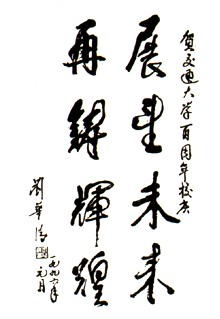 贺交通大学百周年校庆
展望未来
再铸辉煌
刘华清
一九九六年
元月